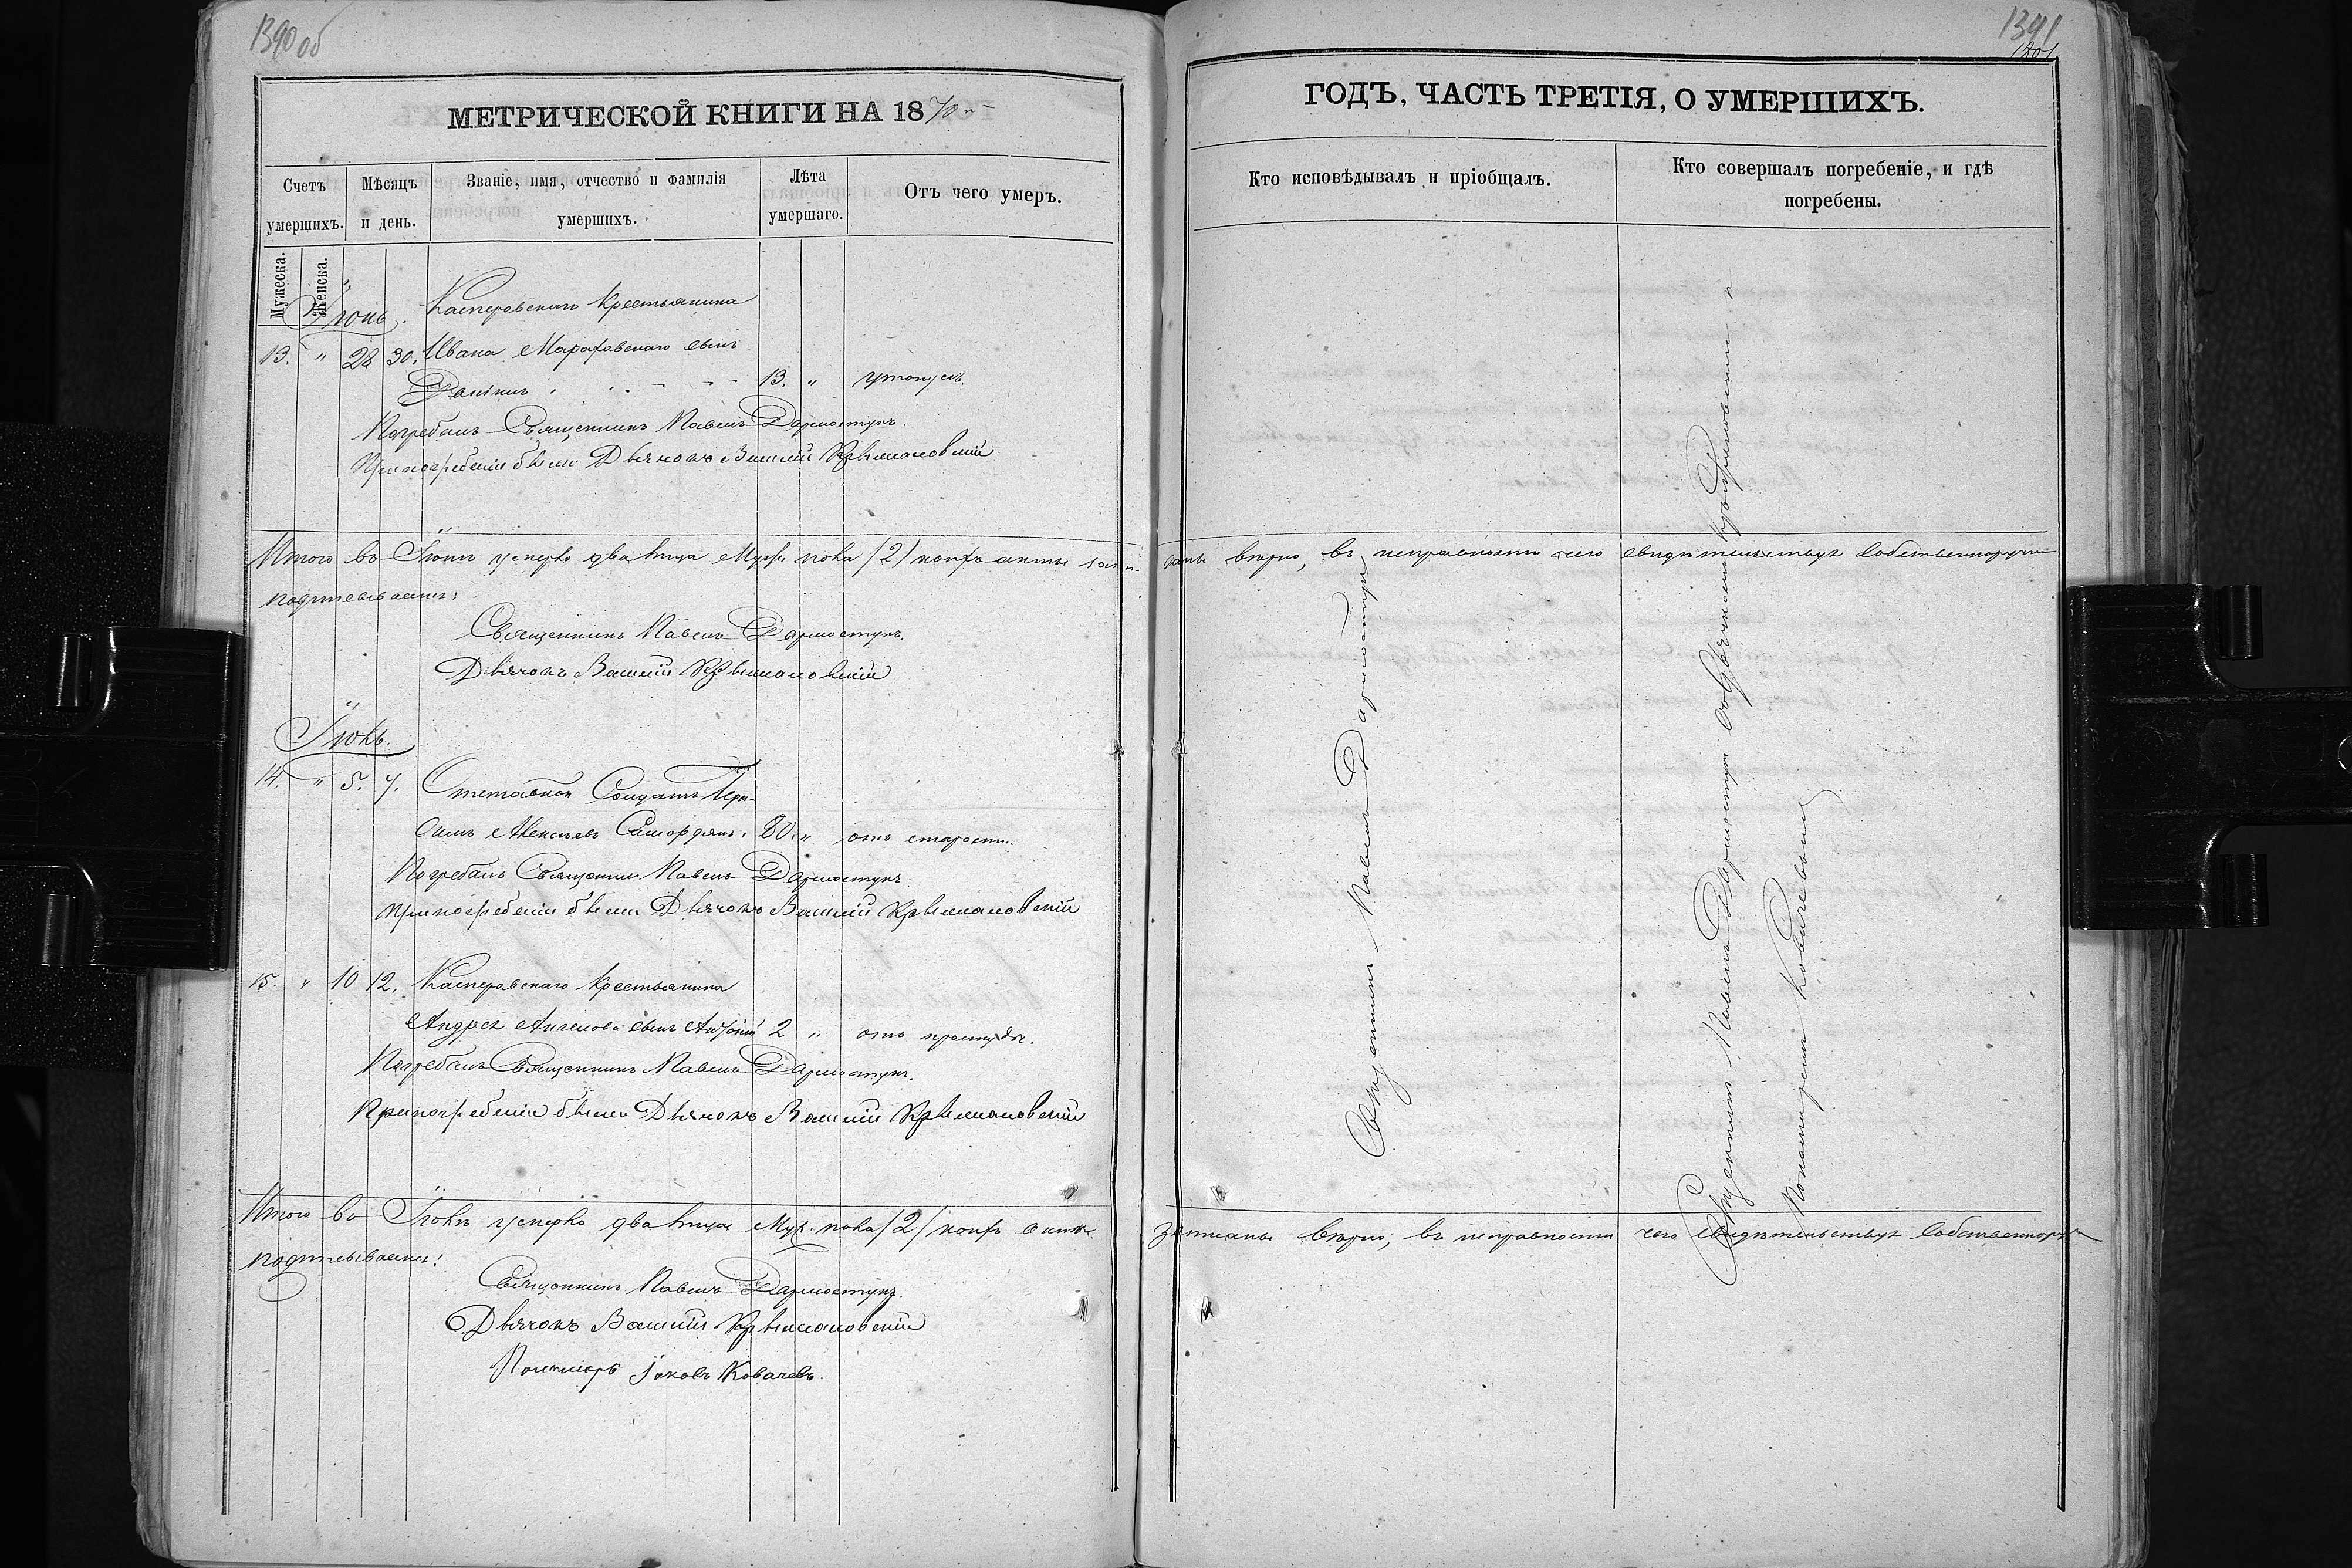 1390 об
МЕТРИЧЕСКОЙ КНИГИ НА 1870
Счетъ умершихъ.
Мѣсяцъ и день.
Званіе, имя, отчество и фамилія умершихъ.
Лѣта умершаго.
Отъ чего умеръ.
Мужеска.
Женска.
Іюнь.
Касперовскаго крестьянина
13. " 28 30. Ивана Мараховскаго сынъ
Даніилъ 13. " утонулъ.
Погребалъ Священникъ Павелъ Дармостукъ.
При погребеніи былъ Дьячокъ Василій Крыжановскій
Итого въ Іюнѣ умерло два лица Муж. пола /2/ коихъ акты запи-
подписываемъ:
Священникъ Павелъ Дармостукъ.
Дьячокъ Василій Крыжановскій
Іюль.
14. " 5. 7. Отставной Солдатъ Гера-
симъ Алексѣевъ 80. " отъ старости.
Погребалъ Священникъ Павелъ Дармостукъ
При погребеніи былъ Дьячокъ Василій Крыжановскій
15. " 10 12. Касперовскаго крестьянина
Андрея Ангелова сынъ Антоній 2 " отъ простуды.
Погребалъ Священникъ Павелъ Дармостукъ.
При погребеніи былъ Дьячокъ Василій Крыжановскій
Итого въ Іюлѣ умерло два лица Муж. пола /2/ коихъ акты
подписываемъ:
Священникъ Павелъ Дармостукъ.
Дьячокъ Василій Крыжановскій
Пономарь Іаковъ Ковачевъ.
1391
ГОДЪ, ЧАСТЬ ТРЕТІЯ, О УМЕРШИХЪ.
Кто исповѣдывалъ и пріобщалъ.
Кто совершалъ погребеніе, и гдѣ погребены.
саны вѣрно, въ исправности чего свидѣтельствуя собственноручно
Священникъ Павелъ Дармостукъ
Священникъ Павелъ Дармостукъ со Дьячкомъ Крыжановскимъ и
Пономаремъ Ковачевымъ
записаны вѣрно, въ исправности чего свидѣтельствуя собственноручно